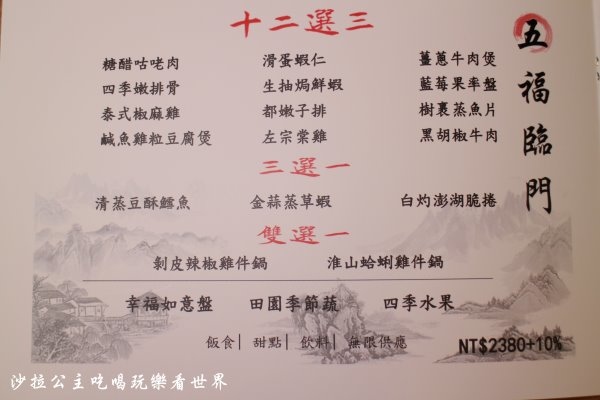 五福臨門
十二選三
糖醋咕咾肉 滑蛋蝦仁 薑蔥牛肉煲
四季嫩排骨 生抽焗鮮蝦 藍莓果率盤
泰式椒麻雞 都嫩子排 樹裹蒸魚片
鹹魚雞粒豆腐煲 左宗棠雞 黑胡椒牛肉
三選一
清蒸豆酥鱈魚 金蒜蒸草蝦 白灼澎湖脆捲
雙選一
剝皮辣椒雞件鍋 淮山蛤蜊雞件鍋
幸福如意盤 田園季節蔬 四季水果
飯食| 甜點| 飲料| 無限供應
NT$2380+10%
沙拉公主吃喝玩樂看世界